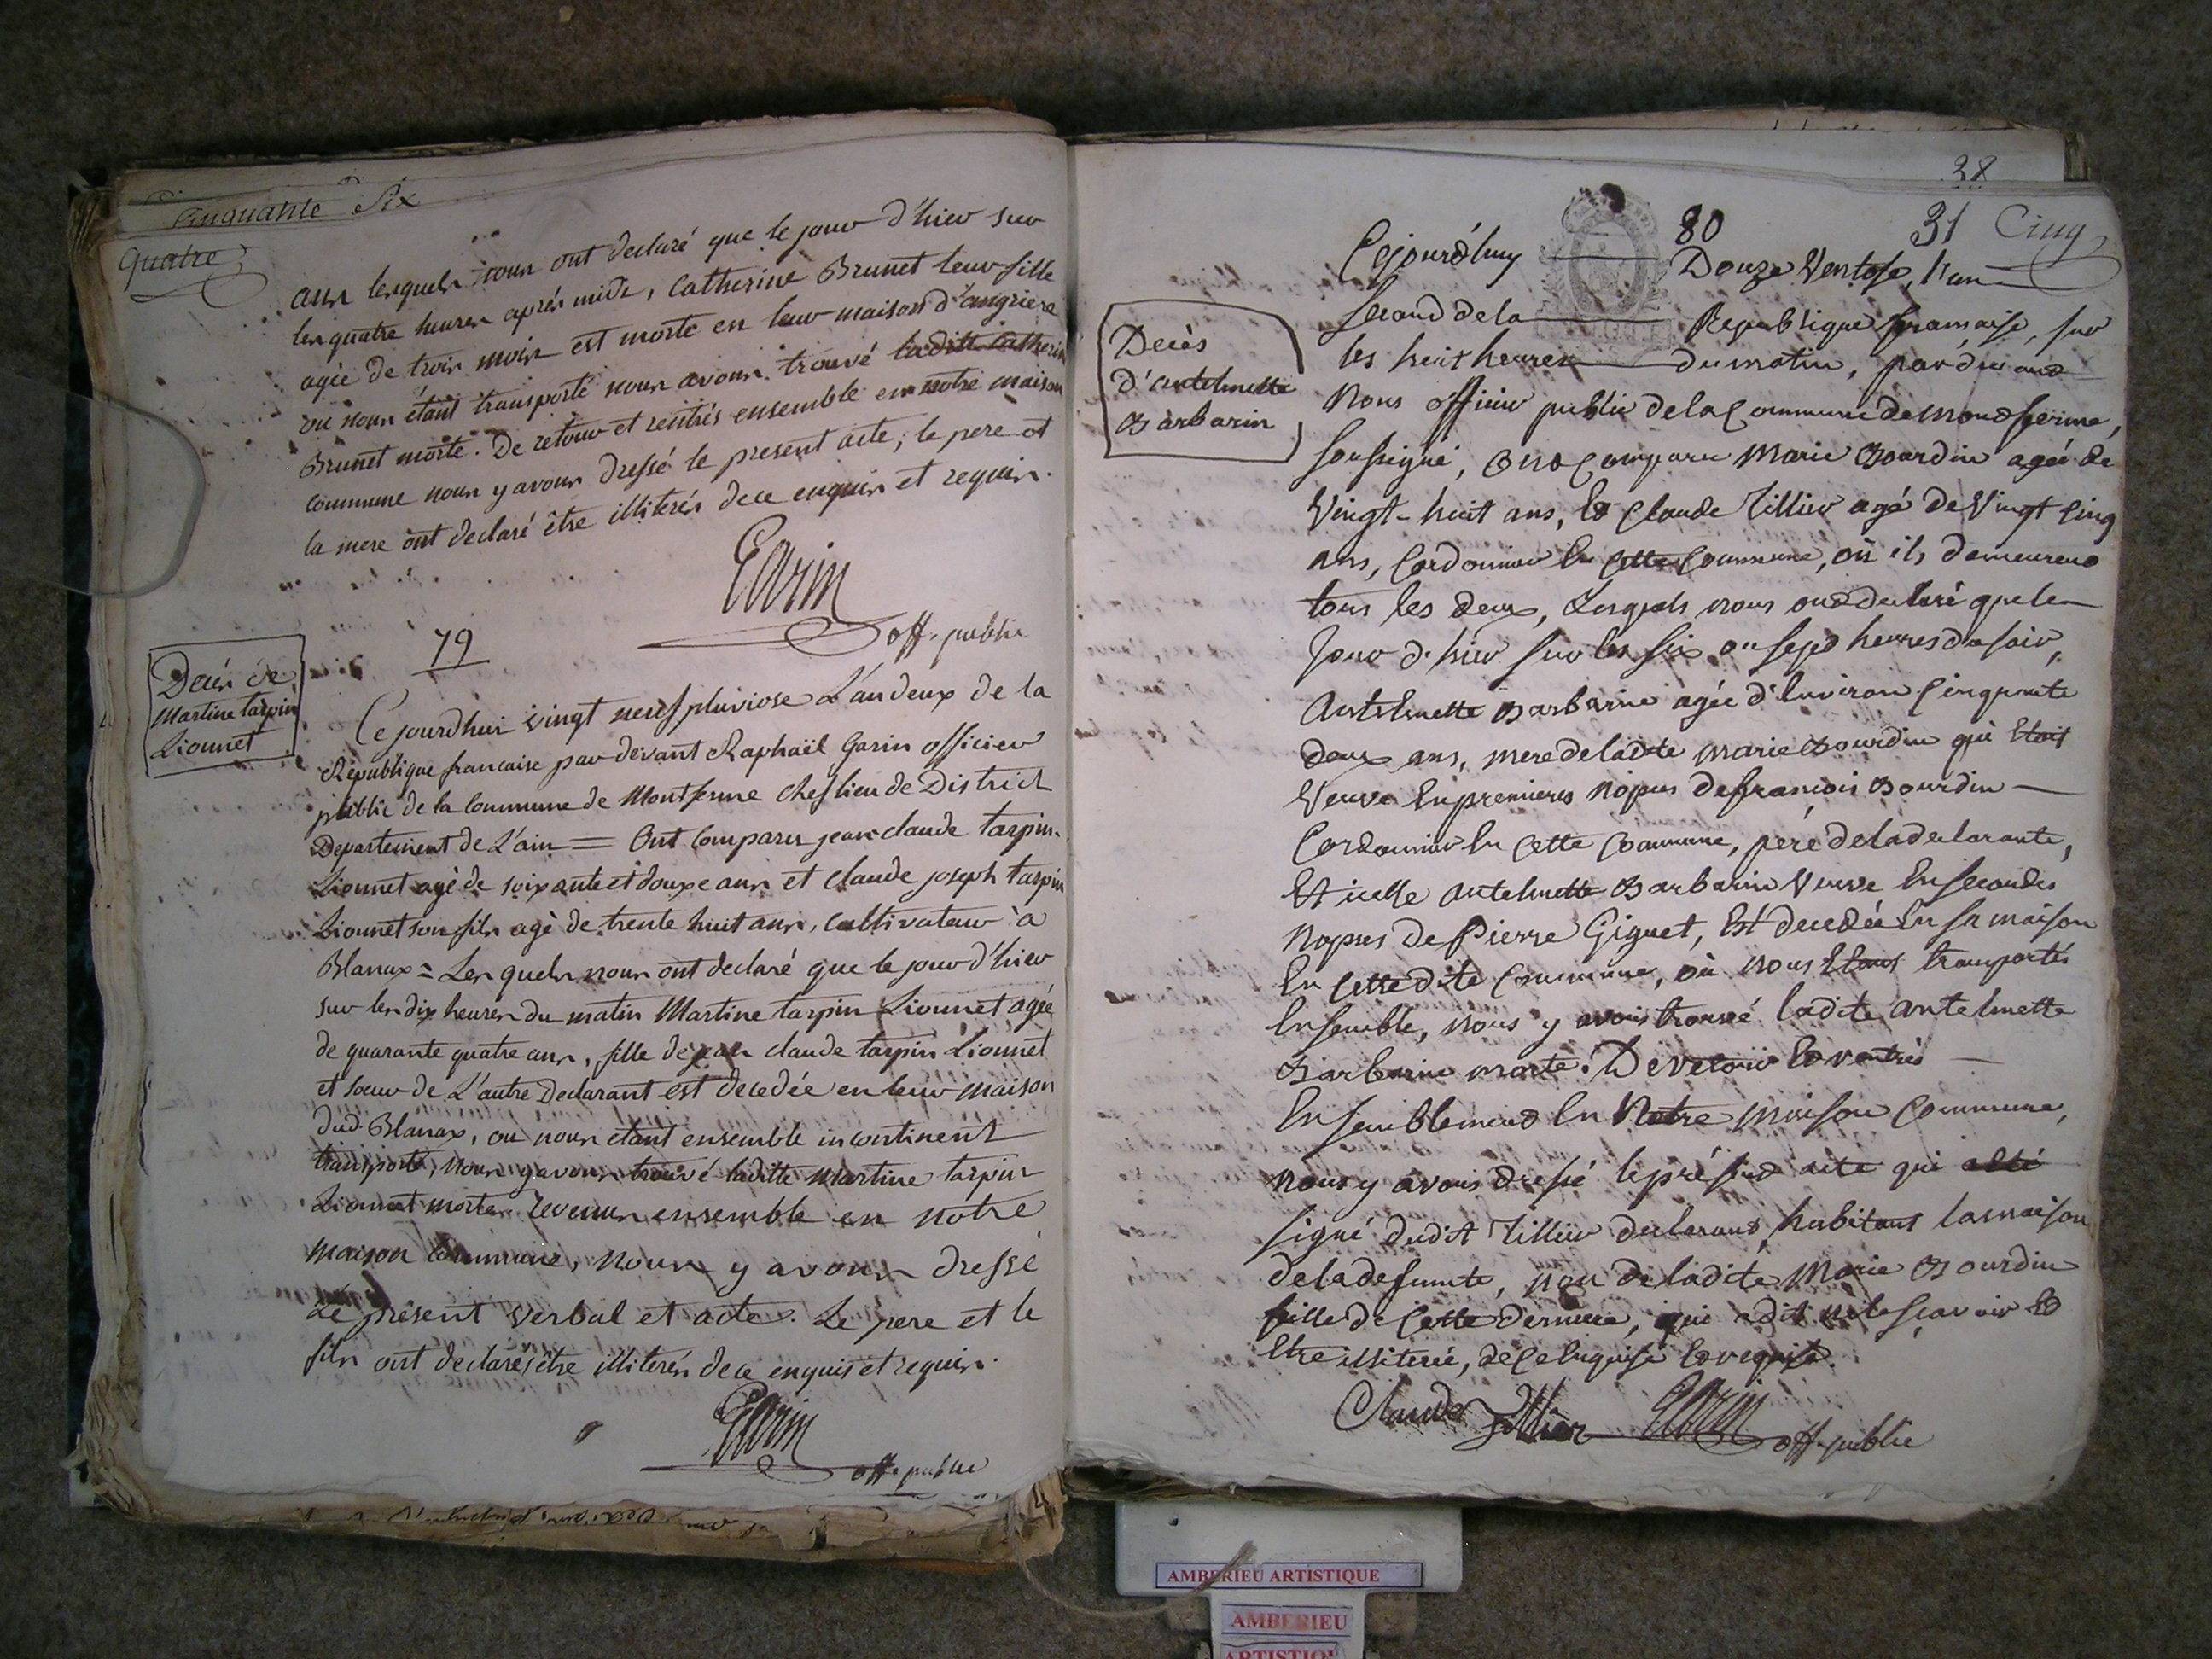 Cinquante Six
quatre
ans lesquels nous ont declaré que le jour d'hier sur
les quatre heures aprés midi, Catherine Brunet leur fille
agée de trois mois est morte en leur maison d'angriere
ou nous étant transporté nous avons trouvé laditte Catherine
Brunet morte. De retour et rentrés ensemble en notre maison
commune nous y avons dressé le present acte, le pere et
la mere ont declaré être illiterés de ce enquis et requis.
Garin
off. public
79
Decès de
Martine tarpin
Lionnet
Cejourdhui vingt neuf pluviose L'an deux de la
Republique francaise par devant Raphaël Garin officier
public de la Commune de Montferme Cheflieu de District
Departement de L'ain = Ont Comparu jean claude tarpin
Lionnet agé de soixante et douze ans et claude joseph tarpin
Lionnet son fils agé de trente huit ans, Cultivateur à
Blanax = Les quels nous ont declaré que le jour d'hier
sur les dix heures du matin Martine tarpin Lionnet agée
de quarante quatre ans, fille de jean claude tarpin Lionnet
et sœur de L'autre Declarant est decedée en leur maison
dud. Blanax, ou nous etant ensemble incontinent
transporté, nous y avons trouvé laditte Martine tarpin
Lionnet morte. Revenus ensemble en notre
maison commune, nous y avons dressé
Le présent verbal et acte. Le pere et le
fils ont declarés être illiterés de ce enquis et requis.
Garin
off. public
38
80
31 Cinq
Cejourd'huy Douze Ventose, l'an
Second de la Republique francaise, sur
les huit heures du matin, pardevant
Decès
d'antelmette
Barbarin
Nous officier public de la Commune de Montferme,
soussigné, ont comparu Marie Bourdin agée de
Vingt-huit ans, Et Claude Tillier agé de Vingt cinq
ans, Cordonnier En Cette Commune, où ils demeurent
tous les deux, Lesquels nous ont declaré que le
Jour d'hier sur les six ou sept heures du soir,
Antelmette Barbarin agée d'Environ Cinquante
deux ans, mere de ladite marie Bourdin qui Etoit
Veuve En premieres Nopces de francois Bourdin
Cordonnier En Cette Commune, pere de la declarante,
Et icelle antelmette Barbarin Veuve En secondes
Nopces de Pierre Giguet, Est decedée En sa maison
En Cette dite Commune, où nous Etant transportés
Ensemble, nous y avons trouvé ladite antelmette
Barbarin morte. De retour Et rentrés
Ensemblement En Notre maison Commune,
nous y avons dressé le présent acte qui a Eté
signé dudit Tillier declarant, habitant la maison
de la defunte, non de ladite Marie Bourdin
fille de Cette derniere, qui a dit ne le sçavoir Et
Etre illiterée, de Ce Enquise Et requise.
Claude Tillier Garin off. public
AMBERIEU ARTISTIQUE
AMBERIEU